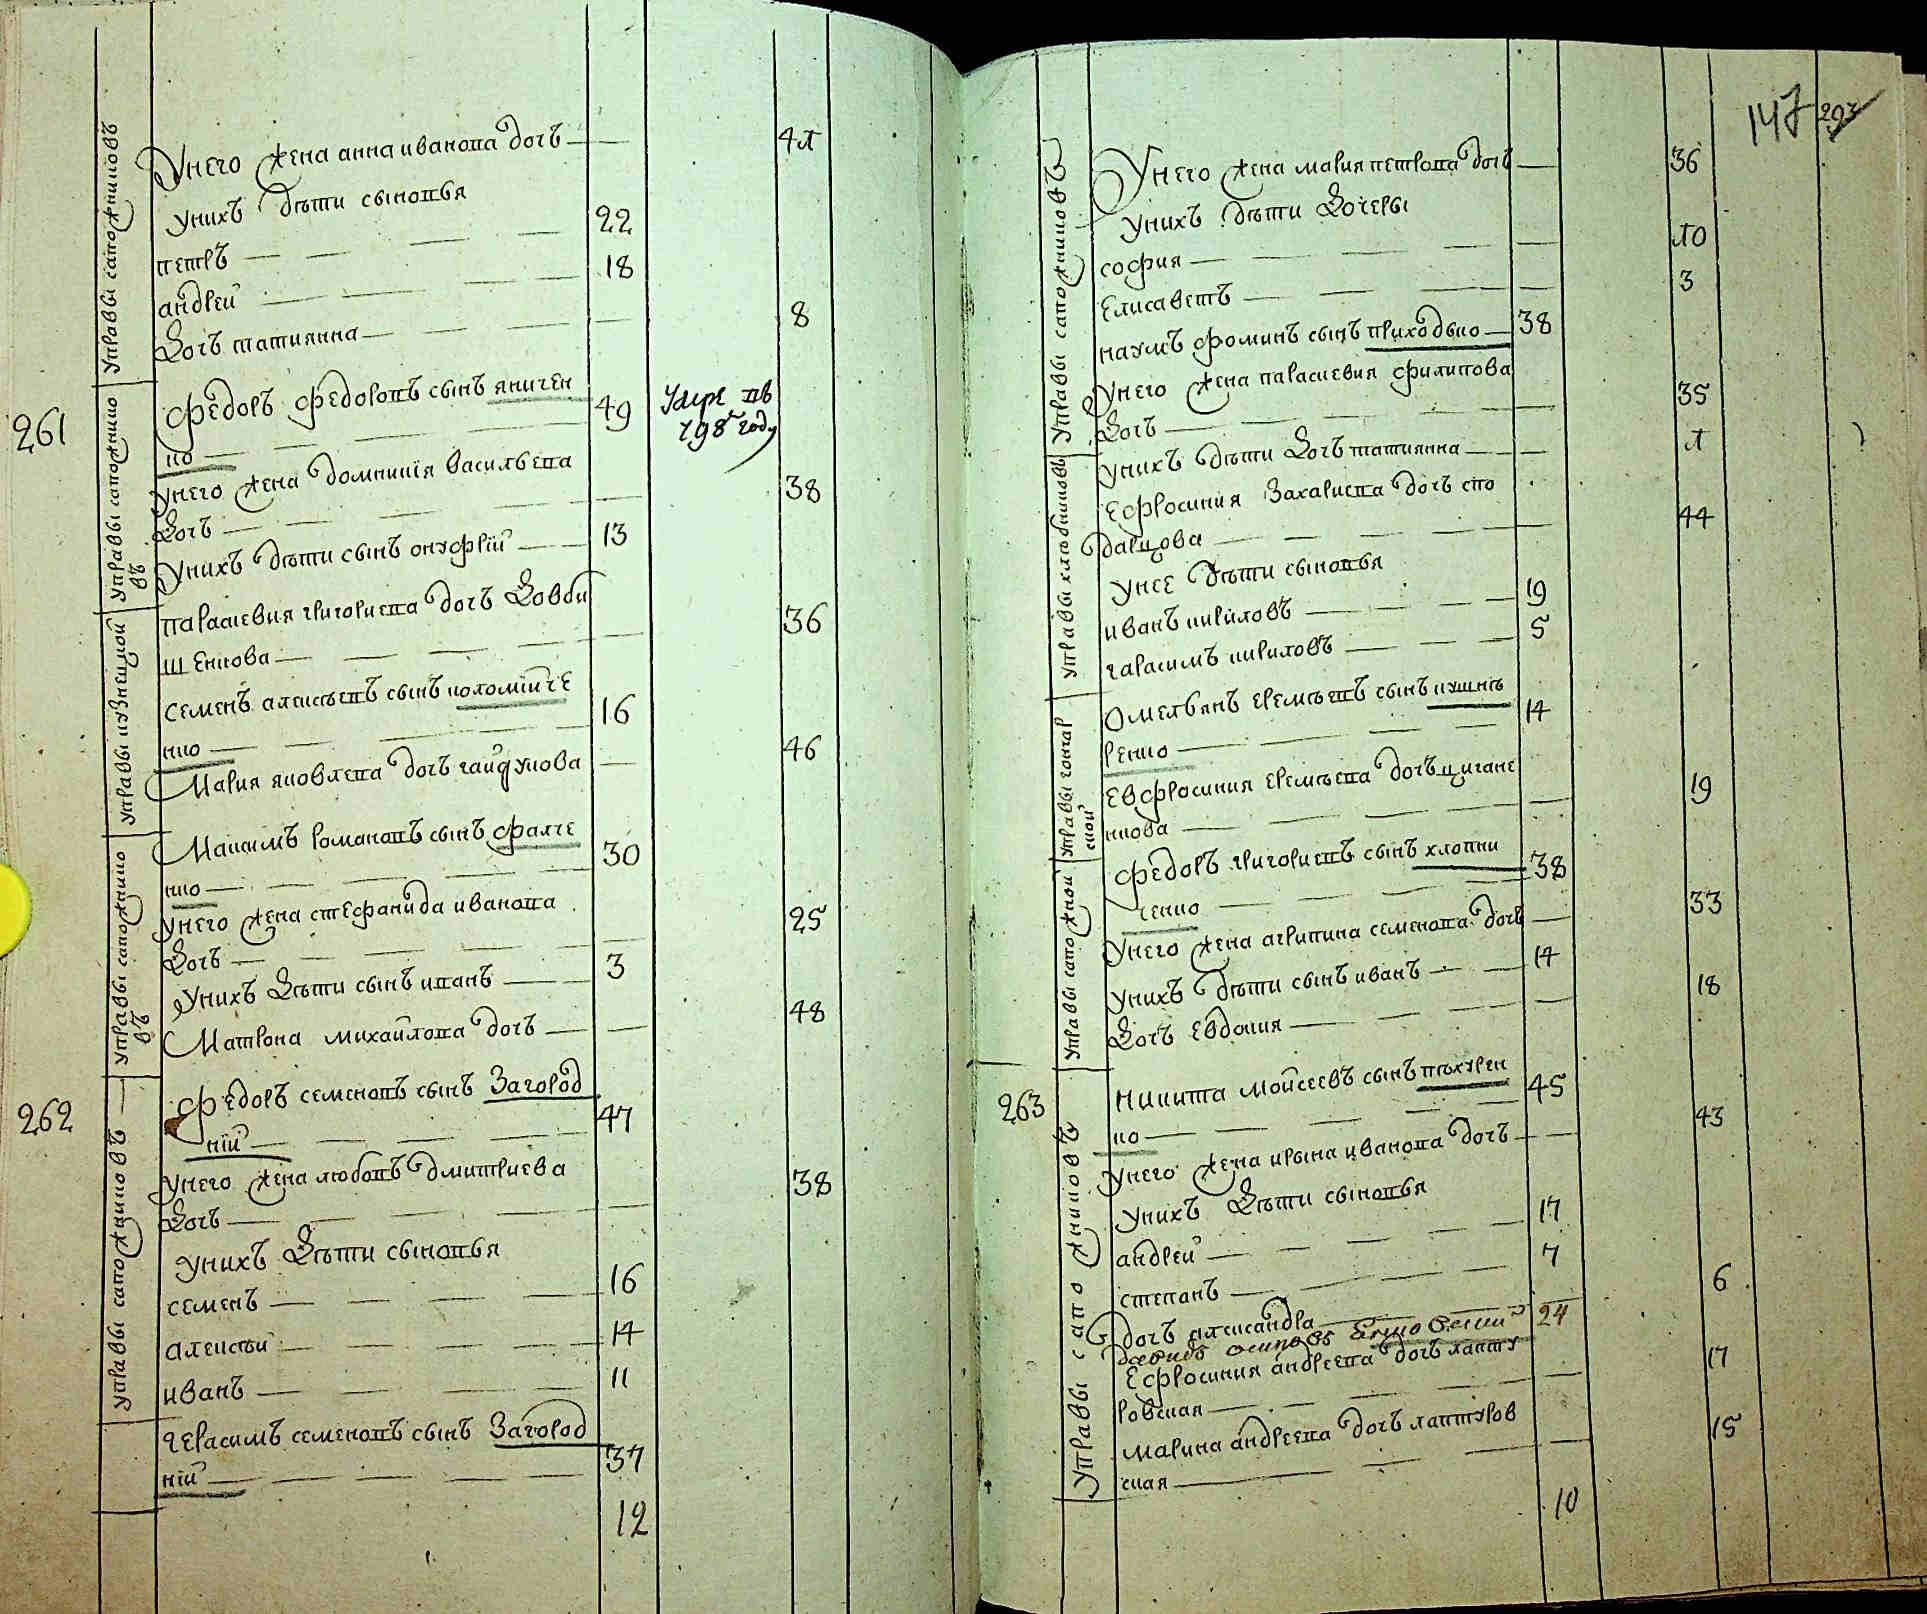 Управы сапожниковъ
Унего жена анна иванова дочь — 41
Унихъ дѣти сыновья
петръ — 22
андрей — 18
Дочь татиянна — 8
261
Управы сапожнико
въ
Федоръ федоровъ сынъ яничен
ко — 49
Умре въ
798 году
Унего жена домникія васильева
Дочь — 38
Унихъ дѣти сынъ онуфрій — 13
Управы кузнецкой
параскевия григориева дочь Довби
щенкова — 36
семенъ алексѣевъ сынъ коломійче
нко — 16
Мария яковлева дочь гайдукова — 46
Управы сапожнико
въ
Максимъ романовъ сынъ фалче
нко — 30
Унего жена стефанида иванова
Дочь — 25
Унихъ Дѣти сынъ иванъ — 3
Матрона михайлова дочь — 48
262
Управы сапожниковъ
Федоръ семеновъ сынъ Загород
ній — 47
Унего жена любовь дмитриева
Дочь — 38
Унихъ Дѣти сыновья
семенъ — 16
алексѣй — 14
иванъ — 11
герасимъ семеновъ сынъ Загород
ній — 37
12
147 293
Управы сапожниковъ
Унего жена мария петрова дочь — 36
Унихъ дѣти Дочеры
софия — 10
Елисаветъ — 3
наумъ фоминъ сынъ приходко — 38
Унего жена параскевия филипова
Дочь — 35
Унихъ дѣти Дочь татиянна — 1
Управы хлѣбниковъ
Ефросиния Захариева дочь сто
дарцова — 44
Унее дѣти сыновья
иванъ кириловъ — 19
гарасимъ кириловъ — 5
Управы гончар
ской
Омельянъ еремѣевъ сынъ кушнѣ
ренко — 14
Евфросиния еремѣева дочь цигане
нкова — 19
Управы сапожной
Федоръ григориевъ сынъ хлопни
ченко — 38
Унего жена агрипина семенова дочь — 33
Унихъ дѣти сынъ иванъ — 14
Дочь Евдокия — 18
263
Управы сапожниковъ
Никита мойсеевъ сынъ пѣхурен
ко — 45
Унего жена ирына иванова дочь — 43
Унихъ Дѣти сыновья
андрей — 17
степанъ — 7
дочь александра — 6
давидъ осиповъ — 24
Ефросиния андреева дочь лапту
ровская — 17
марина андреева дочь лаптуров
ская — 15
10